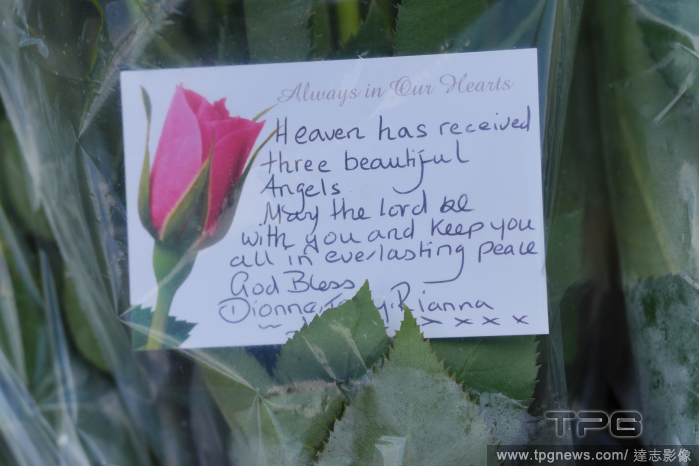 Always in Our Hearts
Heaven has received
three beautiful
Angels
May the lord be
with you and keep you
all in everlasting peace
God Bless
Dionna, Rianna
x x x x
TPG
www.tpgnews.com/ 達志影像